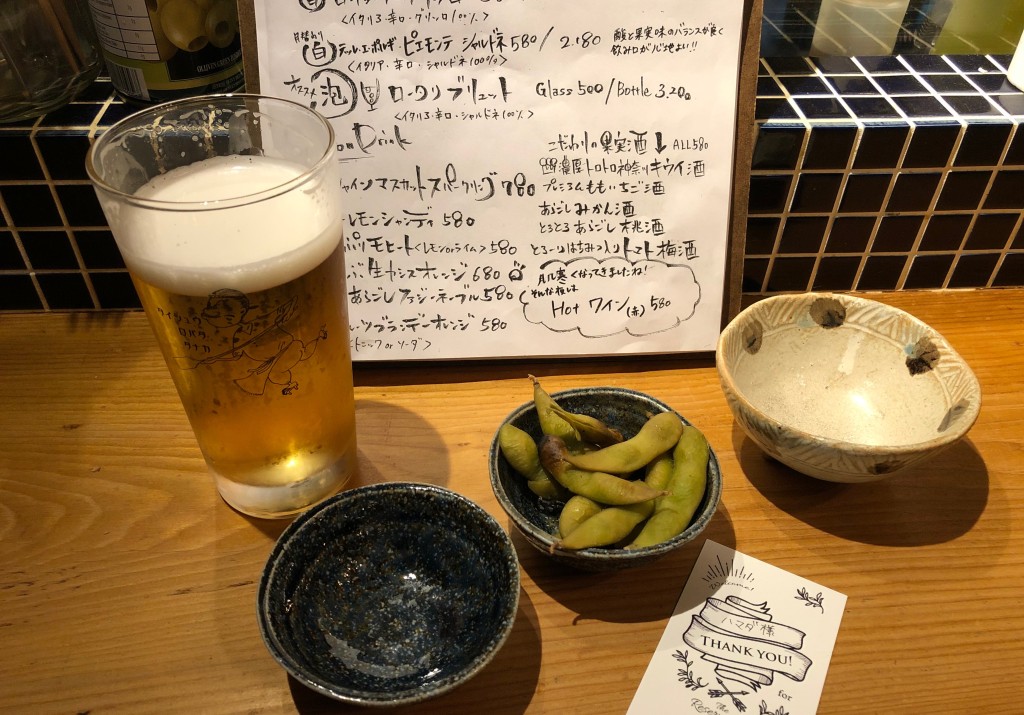 <イタリア・辛口・グリッロ100%>
月替わり 白 テッレ・エ・ポレギ ピエモンテ シャルドネ 580/2.180
酸と果実味のバランスが良く
飲み口が心地よい!!
<イタリア・辛口・シャルドネ100%>
オススメ 泡 ロータリブリュット Glass 500/Bottle 3.200
<イタリア・辛口・シャルドネ100%>
Drink
ャインマスカットスパークリング 780
レモンシャンディ 580
モヒート<レモンorライム> 580
生カシスオレンジ 680
あらごしファジーネーブル 580
ブランデーオレンジ 580
トニック or ソーダ>
こだわりの果実酒 ↓ ALL580
濃厚トロトロ神奈川キウイ酒
ぷころんももいちご酒
あらごしみかん酒
とろとろあらごし桃酒
とろ〜りはちみつ入りトマト梅酒
肌寒くなってきましたね!
そんな夜は
Hot ワイン(赤) 580
ケイシュウ
ロバタ
タナカ
Welcome!
ハマダ様
THANK YOU!
for
The